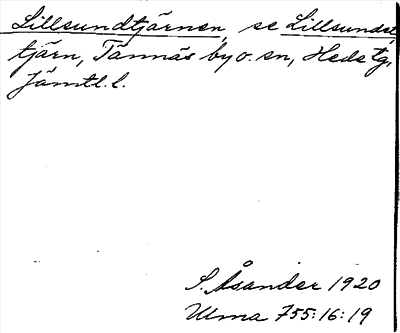 Lillsundtjärnen, se Lillsundst
tjärn, Tännäs by o. sn, Heds tg,
Jämtl. l.
S. Åsander 1920
Ulma 755:16:19